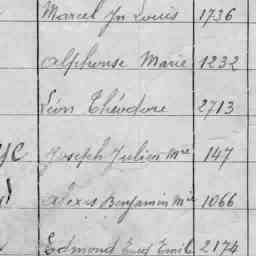 Marcel Jn Louis 1736
Alphonse Marie 1232
Léon Théodore 2713
Joseph Julien Mie 147
Alexis Benjamin Mie 1066
Edmond Emile 2174